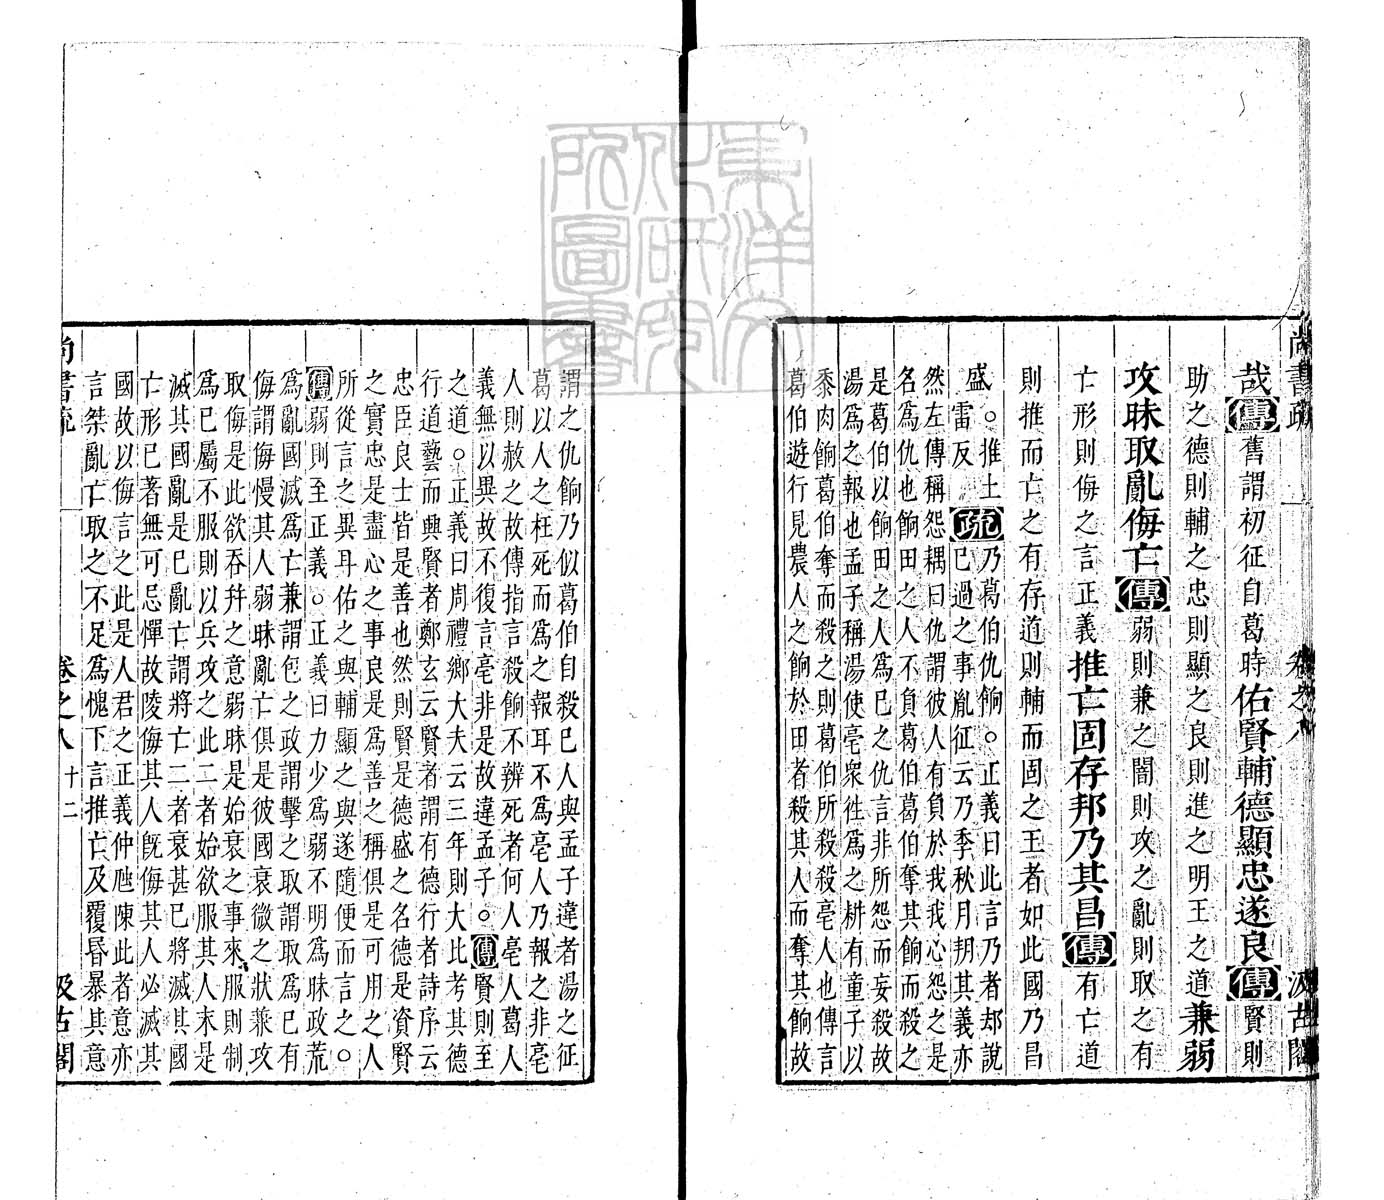 尚書疏 卷之八 汲古閣
哉傳舊謂初征自葛時佑賢輔德顯忠遂良傳賢則
助之德則輔之忠則顯之良則進之明王之道兼弱
攻昧取亂侮亡傳弱則兼之闇則攻之亂則取之有
亡形則侮之言正義推亡固存邦乃其昌傳有亡道
則推而亡之有存道則輔而固之王者如此國乃昌
盛。推土雷反疏乃葛伯仇餉。正義曰此言乃者却說
已過之事胤征云乃季秋月朔其義亦
然左傳稱怨耦曰仇謂彼人有負於我我心怨之是
名爲仇也餉田之人不負葛伯葛伯奪其餉而殺之
是葛伯以餉田之人爲已之仇言非所怨而妄殺故
湯爲之報也孟子稱湯使亳衆徃爲之耕有童子以
黍肉餉葛伯奪而殺之則葛伯所殺殺亳人也傳言
葛伯遊行見農人之餉於田者殺其人而奪其餉故
謂之仇餉乃似葛伯自殺已人與孟子違者湯之征
葛以人之枉死而爲之報耳不爲亳人乃報之非亳
人則赦之故傳指言殺餉不辨死者何人亳人葛人
義無以異故不復言亳非是故違孟子。傳賢則至
之道。正義曰周禮鄉大夫云三年則大比考其德
行道藝而興賢者鄭玄云賢者謂有德行者詩序云
忠臣良士皆是善也然則賢是德盛之名德是資賢
之實忠是盡心之事良是爲善之稱俱是可用之人
所從言之異耳佑之與輔顯之與遂隨便而言之。
傳弱則至正義。正義曰力少爲弱不明爲昧政荒
爲亂國滅爲亡兼謂包之攻謂擊之取謂取爲已有
侮謂侮慢其人弱昧亂亡俱是彼國衰微之狀兼攻
取侮是此欲吞幷之意弱昧是始衰之事來服則制
爲已屬不服則以兵攻之此二者始欲服其人末是
滅其國亂是已亂亡謂將亡二者衰甚已將滅其國
亡形已著無可忌憚故陵侮其人旣侮其人必滅其
國故以侮言之此是人君之正義仲虺陳此者意亦
言桀亂亡取之不足爲愧下言推亡及覆昏暴其意
尚書疏 卷之八 十二 汲古閣
東洋文化研究所圖書